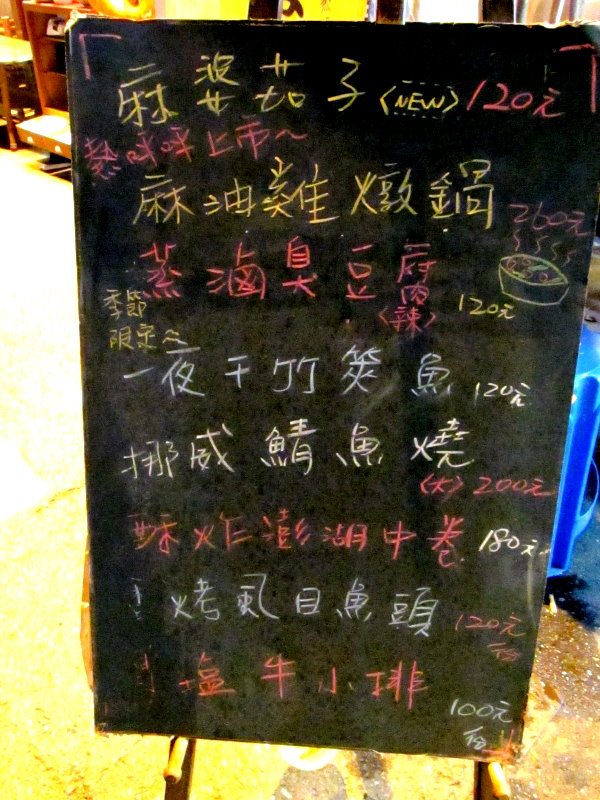 麻婆茄子<NEW>120元
熱呼呼上市~
麻油雞燉鍋
260元
蒸滷臭豆腐
<辣>
120元
季節
限定~
一夜干竹筴魚 120元
挪威鯖魚燒
<大>200元
酥炸澎湖中卷 180元
烤虱目魚頭 120元
塩牛小排
100元